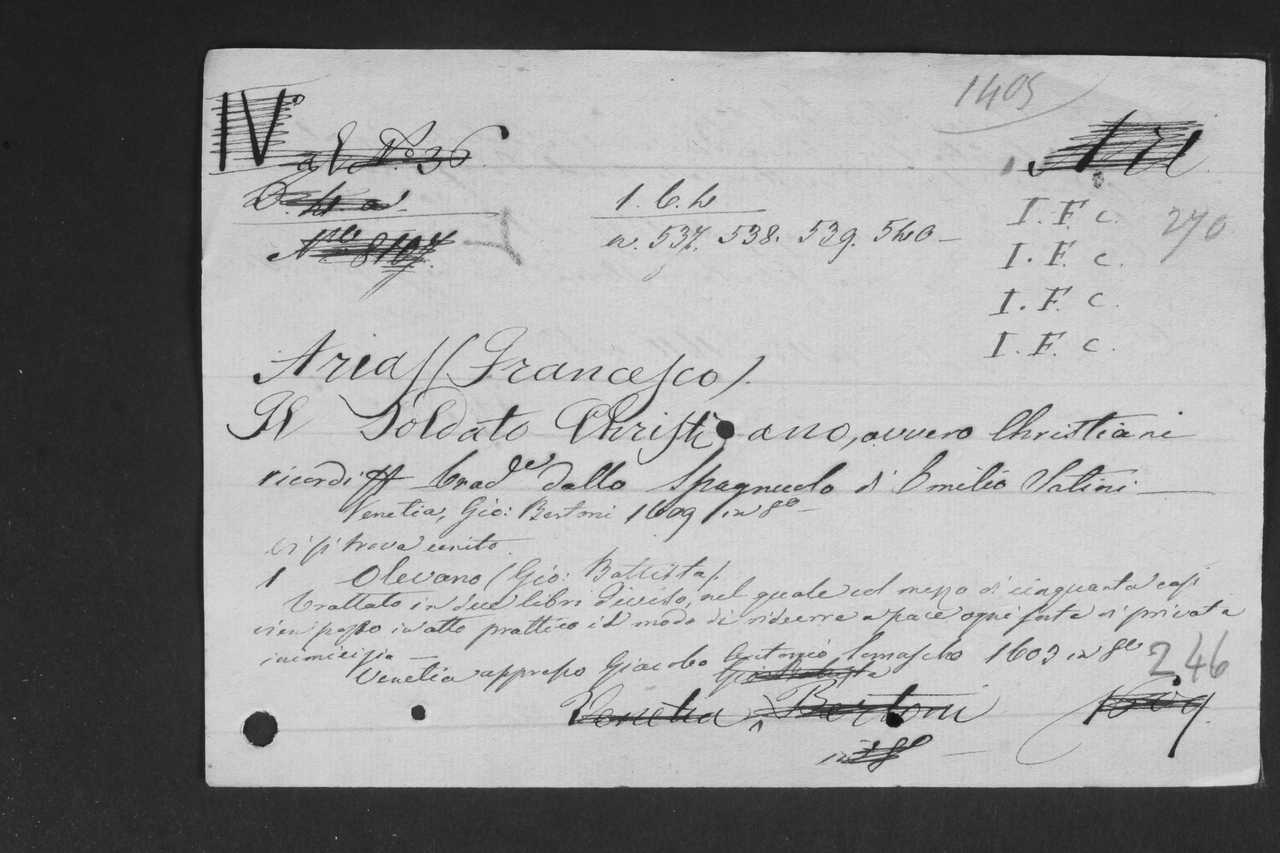 1405
IV°
N° 36
Nro 8107
1. 6. 4
n. 537. 538. 539. 540 —
I. F. c.
270
I. F. c.
I. F. c.
I. F. c.
Arias (Francesco).
Il Soldato Christiano, ovvero Christiani
ricordi trad. dallo Spagnuolo di Emilio
Venetia, Gio: Bertoni 1609 in 8° —
Vi si trova unito
1 Olevano (Gio: Battista).
Trattato in due libri diviso, nel quale col mezzo di cinquanta casi
vien posto in atto prattico il modo di ridurre a pace ogni sorte di privata
inimicizia —
Venetia appresso Giacobo Antonio Somascho 1603 in 8°
246
Venetia Bertoni 1609
in 8°